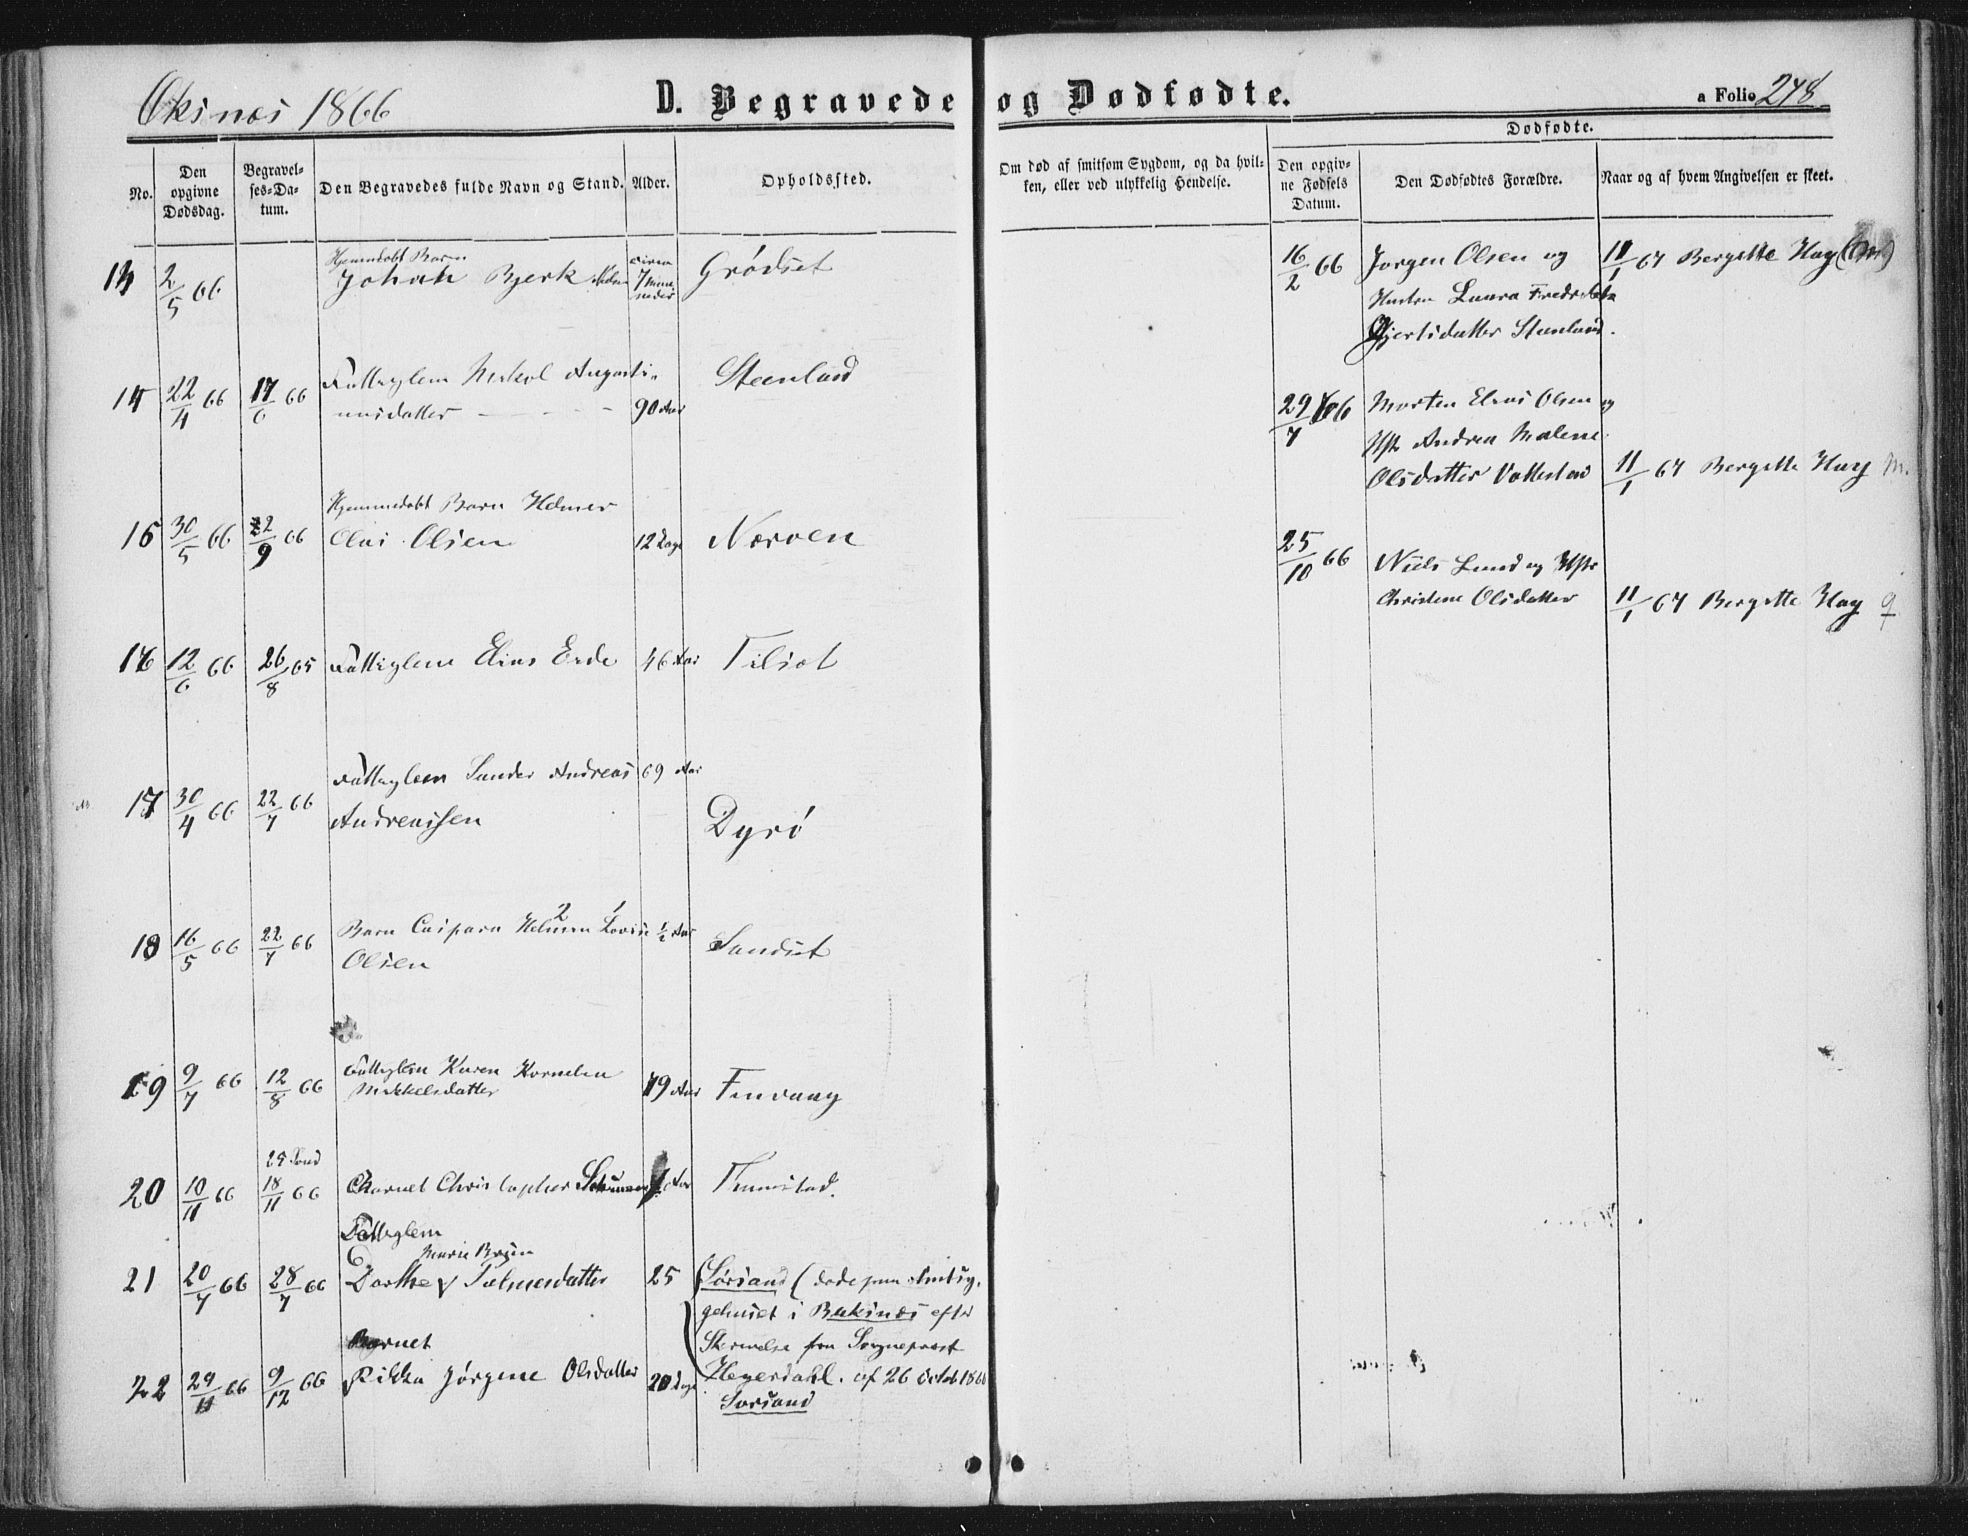 Øksnæs 1866
D. Begravede og Dødfødte.
a Folio 248
Dødfødte.
No.
Den opgivne Dødsdag.
Begravel-
ses-Da-
tum.
Den Begravedes fulde Navn og Stand.
Alder.
Opholdssted.
Om død af smitsom Sygdom, og da hvil-
ken, eller ved ulykkelig Hendelse.
Den opgiv-
ne Fødsels
Datum.
Den Dødfødtes Forældre.
Naar og af hvem Angivelsen er skeet.
2/5 66
Hjemmedøbt Barn
Johan Bjerk
circa
7 Maa-
neder
Grødset
14 22/4 66 17/6 66
Augusti-
nusdatter
90 Aar
Steenland
15 30/5 66 22/9 66
Hjemmedøbt Barn Helmer
Olai Olsen
12 Dage
Nærven
16 12/6 66 26/8 65
Fattiglem Elias Erde
46 Aar
Tilsot
17 30/4 66 22/7 66
Fattiglem Sander Andreas
Andreassen
69 Aar
Dyrø
18 16/5 66 22/7 66
Barn Caspara Helmine Lovise
Olsen
1/2 Aar
Sandset
19 9/7 66 12/8 66
Fattiglem Karen Kornelia
Mikkelsdatter
79 Aar
Finvaag
20 10/11 66
18/11 66
Barnet Christopher
Aar
Tunstad.
Fattiglem
21 20/7 66 28/7 66
Marie Brgin
Dorthe Tølmersdatter
25
Sørsand (døde paa Amtsy-
gehuset i Buksnæs efter
Skrivelse fra Sogneprest
Heyerdahl. af 26 Octob 1866
Barnet
22 29/11 66 9/12 66
Rikka Jørgine Olsdatter
20 Dage
Sørsand
16/2 66
Jørgen Olsen og
Hustru Laura Fredrikke
Gjertsdatter Steenland.
11/1 67 Bergitte Hay (M)
29/7 66
Morten Elias Olsen og
Hst Andrea Malene
Olsdatter Vottestad
11/1 67 Bergitte Hay M.
25/10 66
Niels Lund og Hstr
Christine Olsdatter
11/1 67 Bergitte Hay q